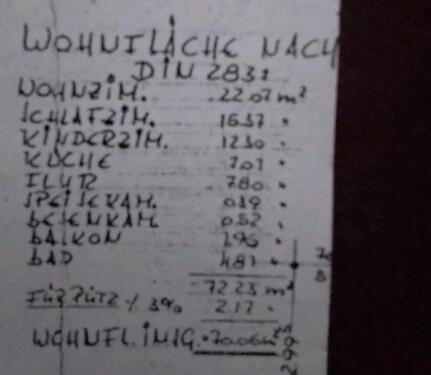 WOHNFLÄCHE NACH
DIN 283:
WOHNZIM. 22.07 m²
SCHLAFZIM. 16.37 "
KINDERZIM. 12.30 "
KÜCHE 7.07 "
FLUR 7.80 "
SPEISEKAM.
BESENKAM. 0.52 "
BALKON 1.96 "
BAD 4.87 "
72.23 m²
3% 2.17 "
WOHNFL. 70.06 m²